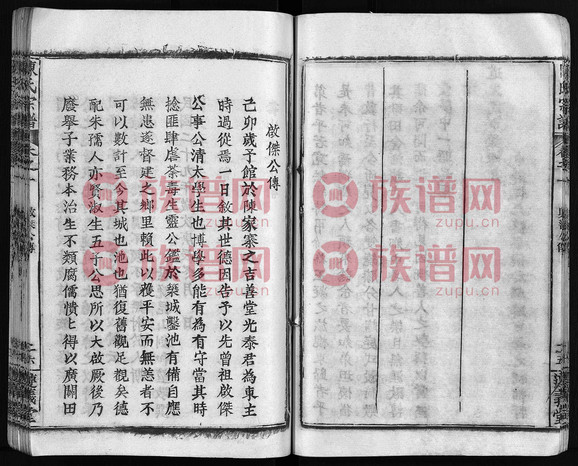 啟傑公傳
己卯歲予館於陳家寨之吉善堂光泰君為東主
時過從焉一日敘其世德因告予以先曾祖啟傑
公事公清太學生也博學多能有為有守當其時
捻匪肆虐荼毒生靈公鑑於築城鑿池有備自應
無患遂督建之鄉里賴此以獲平安而無恙者不
可以數計至今其城也池也猶復舊觀足觀矣德
配朱孺人亦賢淑生五子公思所以大啟厥後乃
廢舉子業務本治生不類腐儒憒憒得以廣開田
陳氏宗譜
啟傑公傳
族谱网
zupu.cn
族谱网
zupu.cn
族谱网
zupu.cn
族谱网
zupu.cn